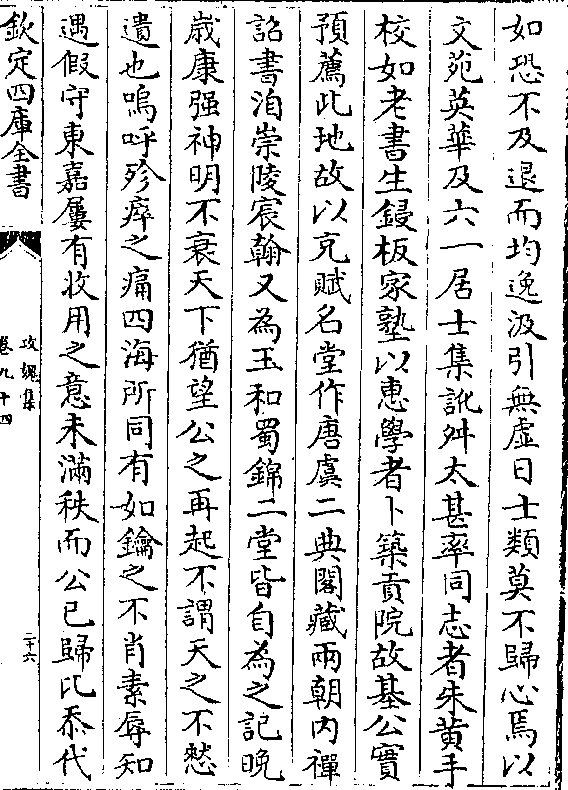 如恐不及退而均逸汲引無虛日士類莫不歸心焉以
文苑英華及六一居士集訛舛太甚率同志者朱黃手
校如老書生鋟板家塾以惠學者卜築貢院故基公實
預薦此地故以克賦名堂作唐虞二典閣藏兩朝内禪
詔書洎崇陵宸翰又為玉和蜀錦二堂皆自為之記晚
嵗康强神明不衰天下猶望公之再起不謂天之不憖
遺也嗚呼殄瘁之痛四海所同有如鑰之不肖素辱知
遇假守東嘉屢有收用之意未滿秩而公已歸比忝代
欽定四庫全書
攻媿集
卷九十四
二十六